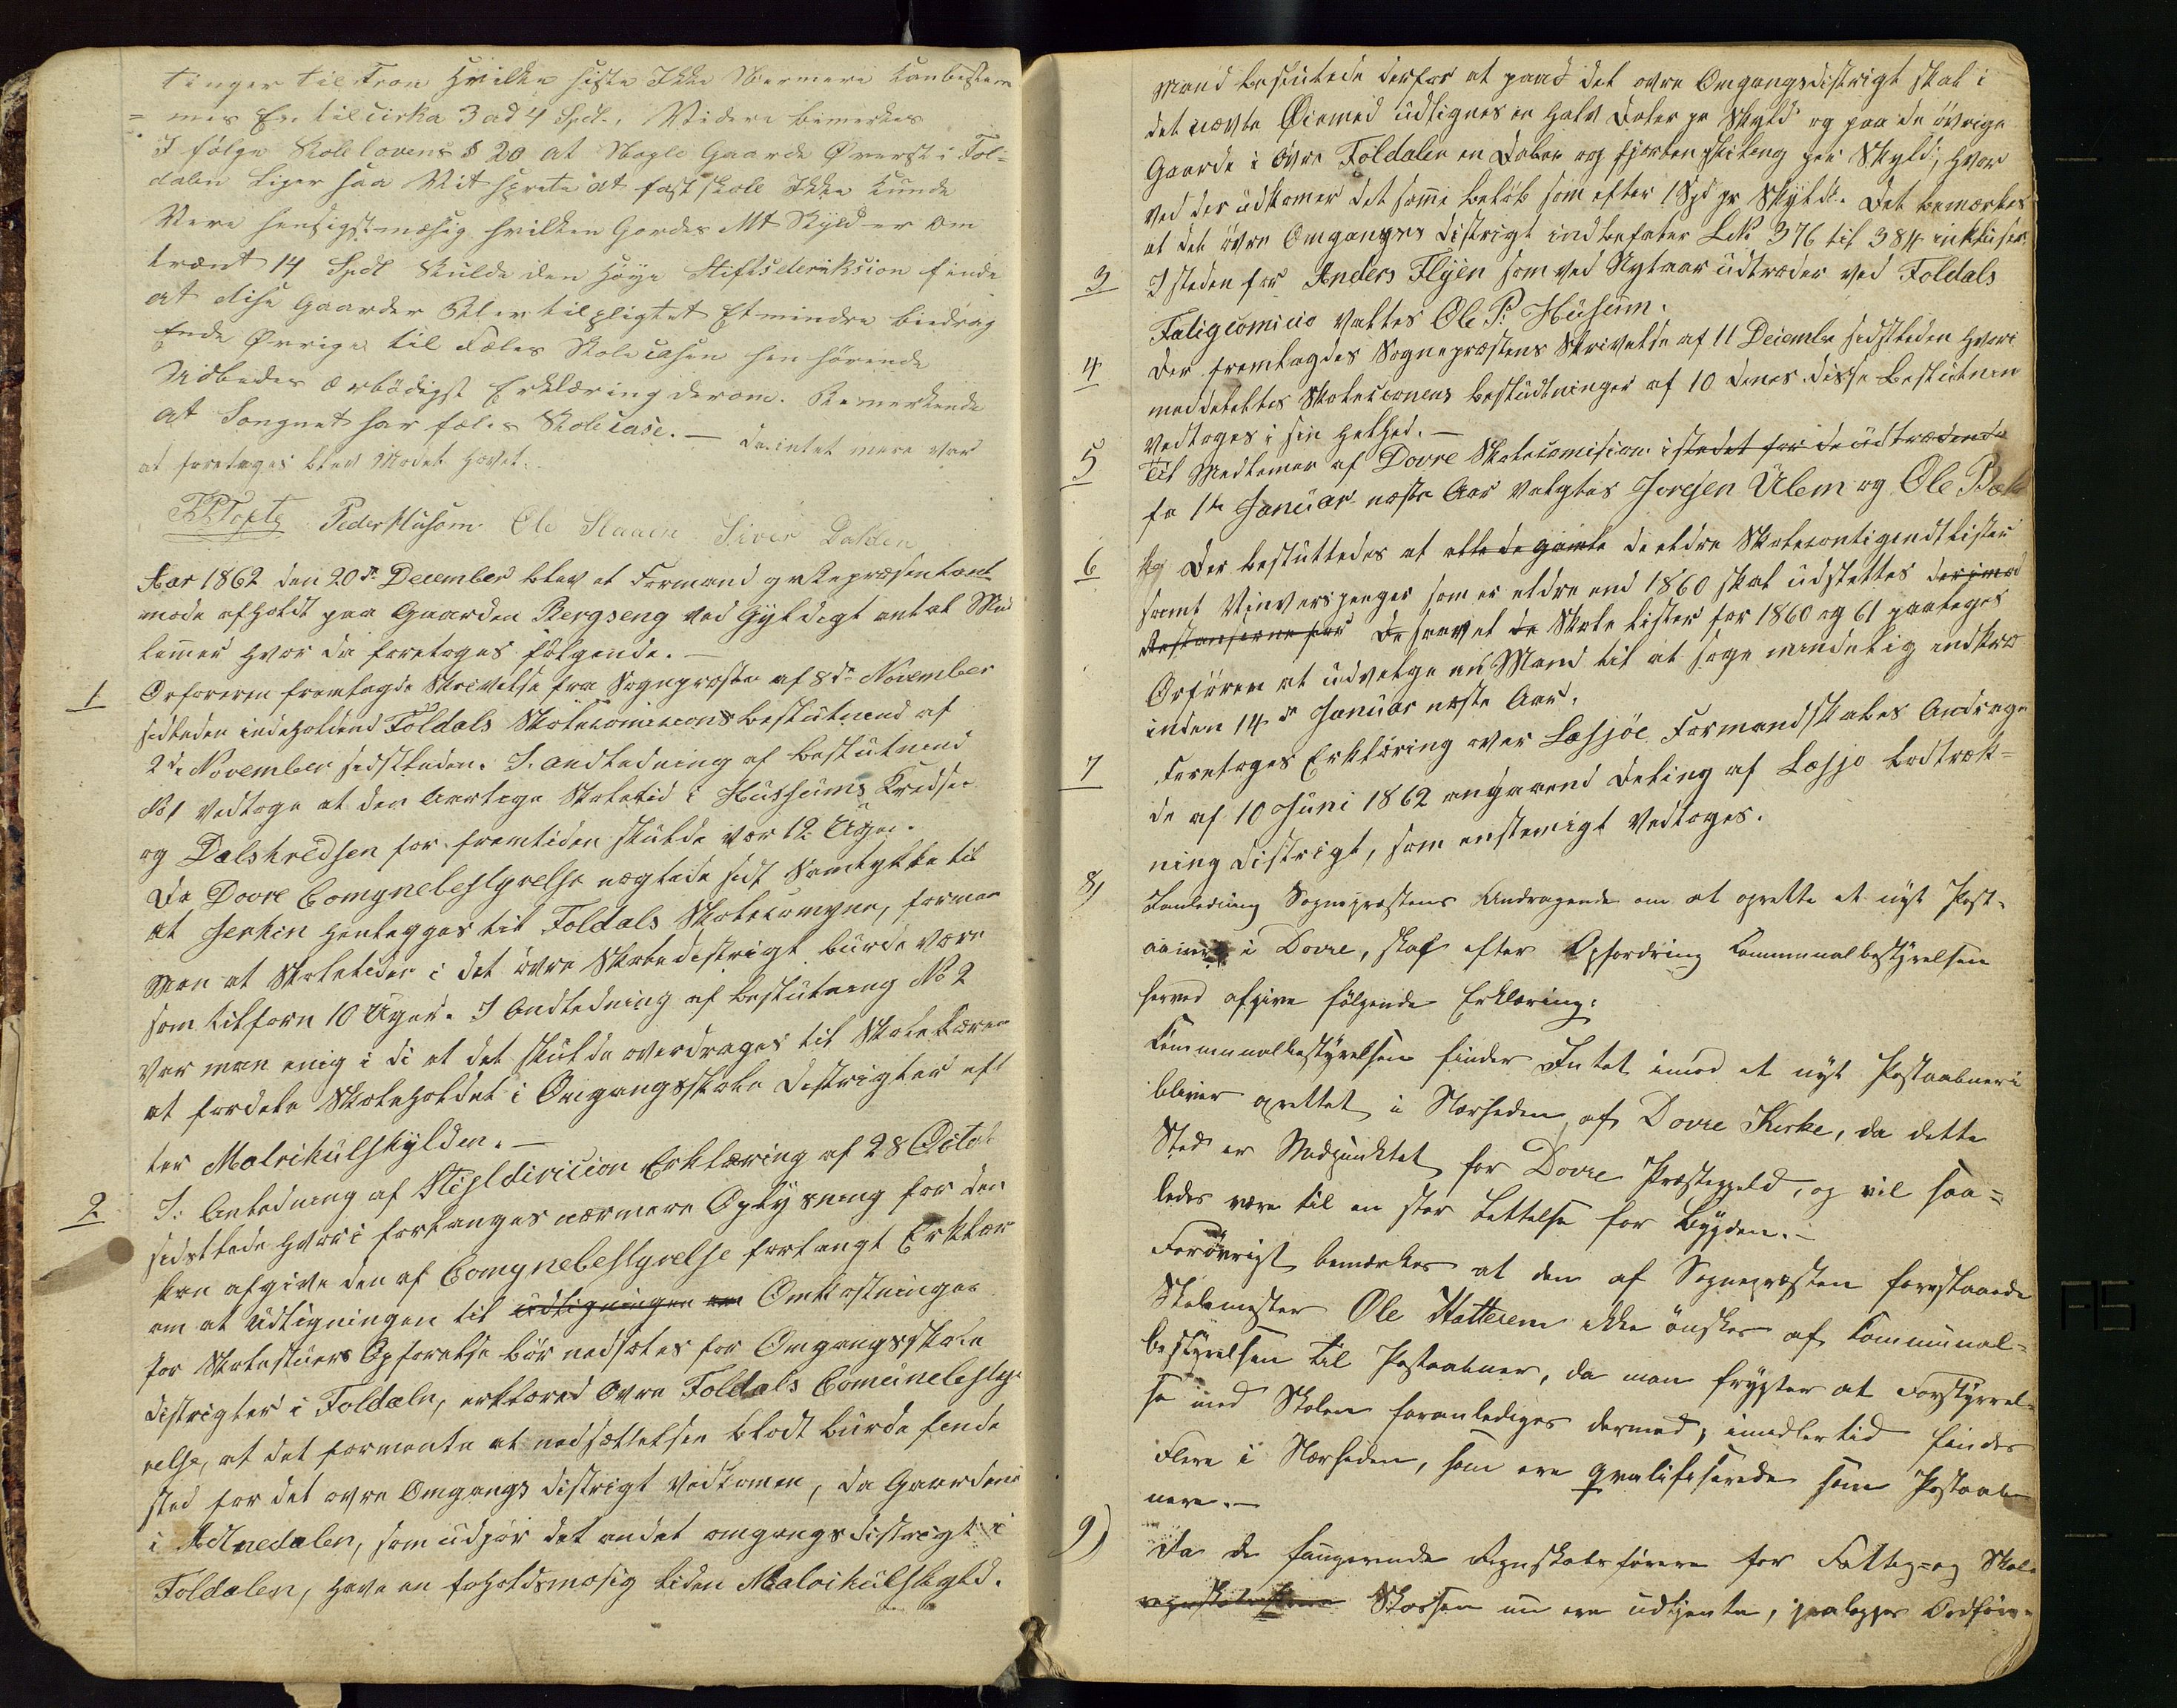 tinger til Fron Hvilke siste Ikke Nermere kan bestem
= mes Er. til cirka 3 ad 4 Spd. Videre bemerkes
I følge Skole lovens § 20 at Nogle Gaarde Øverst i Fol=
dalen liger saa Vit sprete at fast skole Ikke kunde
Vere hensigstmæsig hvilken Gordes Mt Skyld er om
trænt 14 Spdl Skulde den Høye Stiftsdereksion finde
at disse Gaarder Bler tilpligtet Et mindre biedrag
Ende Øvrige til Fæles Skole casen hen hörende
Udbedes ærbödigst Erklæring derom. Bemerkende
at Songnet har fæles Skolecase. — Da intet mere var
at foretages blev Modet hævet.
PPTofte Peder Husom Ole Slaaen Siver Dalden
Aar 1862 den 20de December blev et Formand og Repræsentant
mode afholdt paa Gaarden Bergseng ved Gyldigt antal Med
lemer hvor da foretoges følgende. —
1 Orforeren fremlagde Skrivelse fra Sognepræsten af 8de November
sidleden indeholdend Foldals Skolecomisions beslutnend af
2de November sidstleden. I. andledning af beslutnend
No 1 vedtoges at den aarlige Skoletid i Hussums Kredsen
og Dalskredsen for fremtiden skulde vær 12 Uger.
Da Dovre Comynebestyrelse nægtede sidt Samtykke til
at Jerkin henlegges til Foldals Skolecomyne, formen
Man at Skoletiden i det övre Skoledistrigt burde være
som tilforn 10 Uger. I Andledning af beslutneng No 2
var man enig i di at det skulde overdrages til Skolelæren
at fordele Skoleholdet i Omgangsskole distrigter eft
ter Matrikulskylden. —
2 I. Anledning af Stiftdiricion Erklæring af 28 Octob
sidstlede hvori forlanges nærmere Oplysning for den
kan afgive den af Comynebestyrelse forlangt Erklær
om at Udligningen til udligningen en Omkostninger
for Skolestuers Opforelse bör nedsætes for Omgangsskole
distrigter i Foldaln, erklæred Övre Foldals Comunebesty
relse, at det formente at nedsættelsen blodt burde finde
sted for det ovre Omgangs distrigt vedkomen, da Gaardene
i Adnedalen, som udgör det andet omgangsdistrigt i
Foldalen, have en foholdsmæsig liden Matrikülskyld.
Mand beslutede derfor at paa det ovre Omgangsdistrigt skal i
det nævte Øiemed udlignes en halv daler pr Skyld og paa de övrige
Gaarde i övre Foldalen en Daler og fjorten skileng per Skyld, hvor
ved der udkomer det same beløb som efter 1 Spd pr Skyldd. Det bemærkes
at det övre Omganges distrigt indbefater Lnr. 376 til 384 inklusiv.
3 I steden for Anders Flyen som ved Nytaar udtræder ved Foldals
Fatigcomicio valtes Ole P. Husum.
4 Der fremlagdes Sognepræstens Skrivelse af 11 Decembr sidstleden hvori
meddeltes Skolecionens beslutninger af 10 denes disse beslutnen
vedtoges i sin helhed. —
5 Til Medlemer af Dovre Skolecomision i stedet for de udtrædende
fra 1te Januar næste Aar valgtes Joregen Ulem og Ole Bæk
6 Der besluttedes at alle de gamle de eldre Skolecontigendtlister
samt Vinverspenger som er eldre end 1860 skal udslettes derimod
Restanserne for De saavel de Skole lister for 1860 og 61 paaleges
Orfören at udvelge en Mand til at søge mindelig indkræ
inden 14de Januar næste Aar.
7 Foretoges Erklæring over Læsjöe Formandskabes Andrage
de af 10 Juni 1862 angaaend deling af Læsjo Lodtræk=
ning distrigt, som enstemigt vedtoges.
8) I Anledning Sognepræstens Andragende om at oprette et nyt Post=
aabneri i Dovre, skal efter Opfordring Communalbestyrelsen
herved afgive følgende Erklæring:
Communalbestyrelsen finder Intet imod et nyt Postaabneri
bliver oprettet i Nærheden af Dovre Kirke, da dette
Sted er Midpunktet for Dovre Præstegjeld, og vil saa=
ledes være til en stor Lettelse for Bygden. —
Forövrigt bemærkes at den af Sognepræsten foreslaaede
Skolemester Ole Hatterem ikke önskes af Communal=
bestyrelsen til Postaabner, da man frygter at Forstyrrel=
se med Skolen foranlediges dermed; imidlertid findes
Flere i Nærheden, som ere qvalifiserede som Postaab
nere. —
9) Da de fungerende Regnskabsförere for Fattig= og Skole
regnskabsförere Kassen nu ere udtjente, paalegges Ordföre=